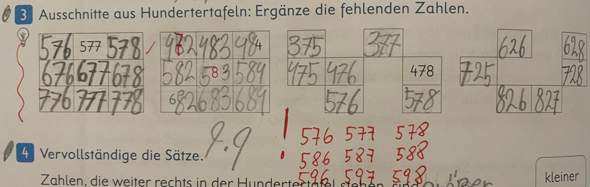 3 Ausschnitte aus Hundertertafeln: Ergänze die fehlenden Zahlen.
576 577 578 482 483 484 375 377 626 628
676 677 678 582 583 584 475 476 478 725 728
776 777 778 682 683 684 576 578 826 827
! 576 577 578
586 587 588
596 597 598
4 Vervollständige die Sätze.
Zahlen, die weiter rechts in der Hundertertafel stehen, sind
kleiner